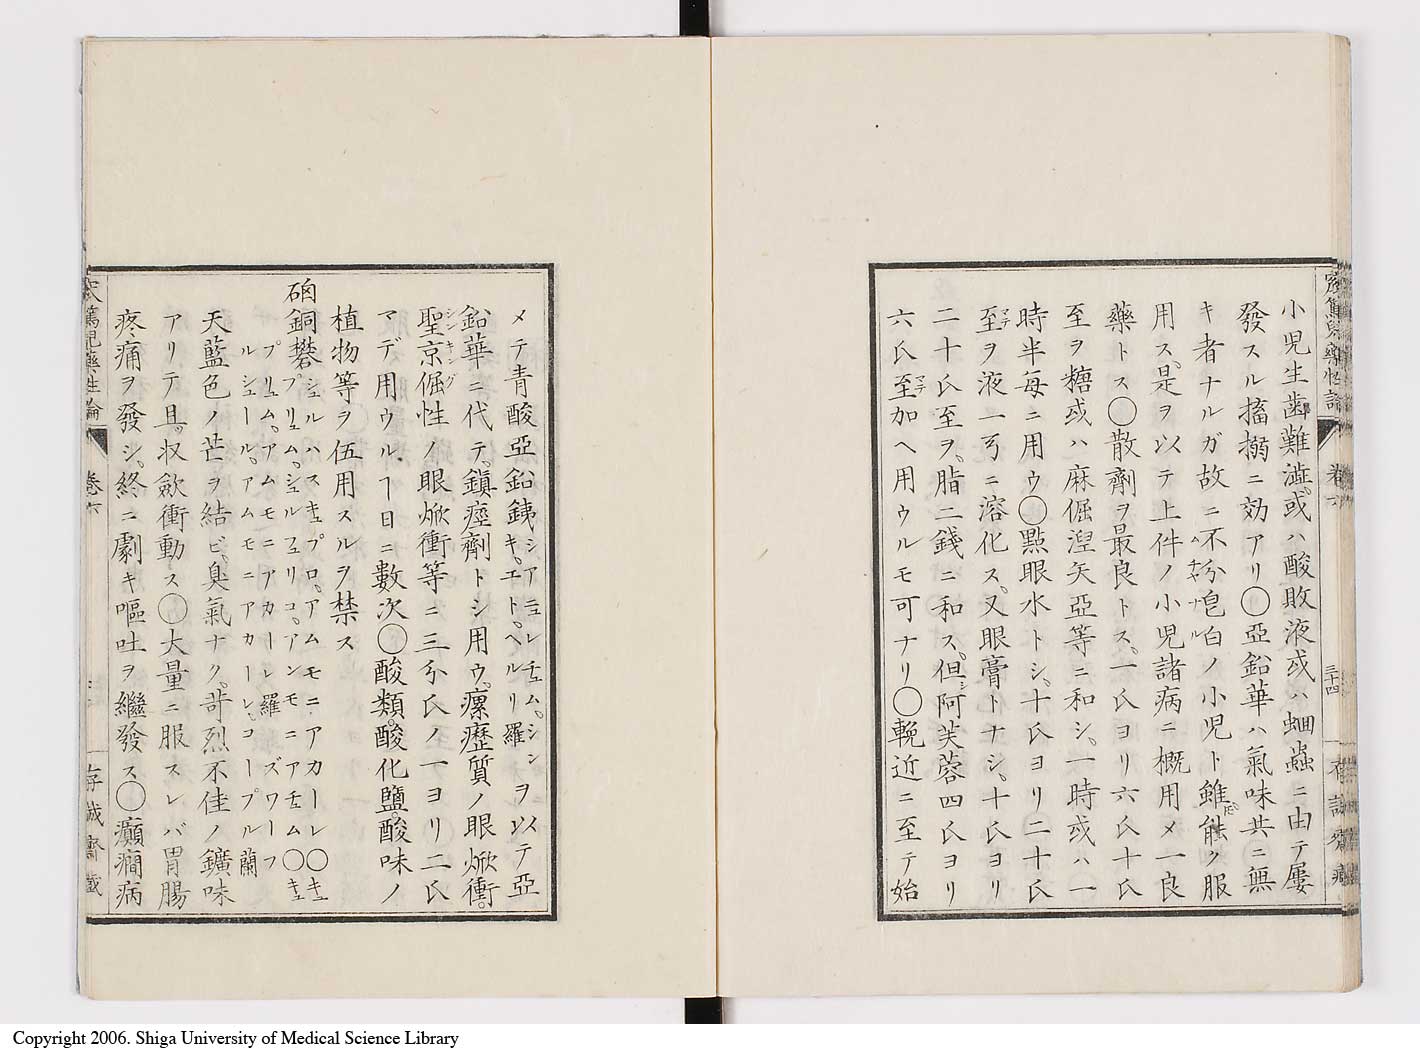 小児生歯難澁或ハ酸敗液或ハ蛔蟲ニ由テ屢
發スル搐搦ニ効アリ〇亞鉛華ハ氣味共ニ無
キ者ナルガ故ニ不分皂白ノ小児ト雖能ク服
用ス。是ヲ以テ上件ノ小児諸病ニ概用メ一良
藥トス〇散劑ヲ最良トス。一氏ヨリ六氏十氏
至ヲ糖或ハ麻倔涅矢亞等ニ和シ。一時或ハ一
時半毎ニ用ウ〇點眼水トシ。十氏ヨリ二十氏
至ヲ液一弓ニ溶化ス。又眼膏トナシ。十氏ヨリ
二十氏至ヲ。脂二錢ニ和ス。但シ阿芙蓉四氏ヨリ
六氏至加ヘ用ウルモ可ナリ〇輓近ニ至テ始
三十四
メテ青酸亞鉛銕シアニュレチュム。シンキ。エト。ヘルリ羅ヲ以テ亞
鉛華ニ代テ。鎭痙劑トシ用ウ。瘰癧質ノ眼焮衝。
聖京倔性ノ眼焮衝等ニ三分氏ノ一ヨリ二氏
マデ用ウル ヿ日ニ數次〇酸類。酸化鹽。酸味ノ
植物等ヲ伍用スルヲ禁ス
硇銅礬シュルハスキュプロ。アムモニアカーレ〇キュプリュム。シュルフュリコ。アンモニアチュム〇キュ
プリュム。アムモニアカーレ羅ズワーフルシュール。アムモニアカーレ。コープル蘭
天藍色ノ芒ヲ結ビ。臭氣ナク。苛烈不佳ノ鑛味
アリテ且。収歛衝動ス〇大量ニ服スレバ胃腸
疼痛ヲ發シ。終ニ劇キ嘔吐ヲ繼發ス〇癲癇病
窊篤児藥性論
巻六
存誠齋藏
Copyright 2006. Shiga University of Medical Science Library